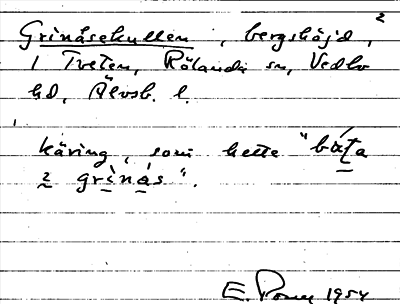 2
Grinåsekullen, bergshöjd,
i Tveten, Rölanda sn, Vedbo
hd, Älvsb. l.
käring, som hette "båta
i grinås".
E. 1954